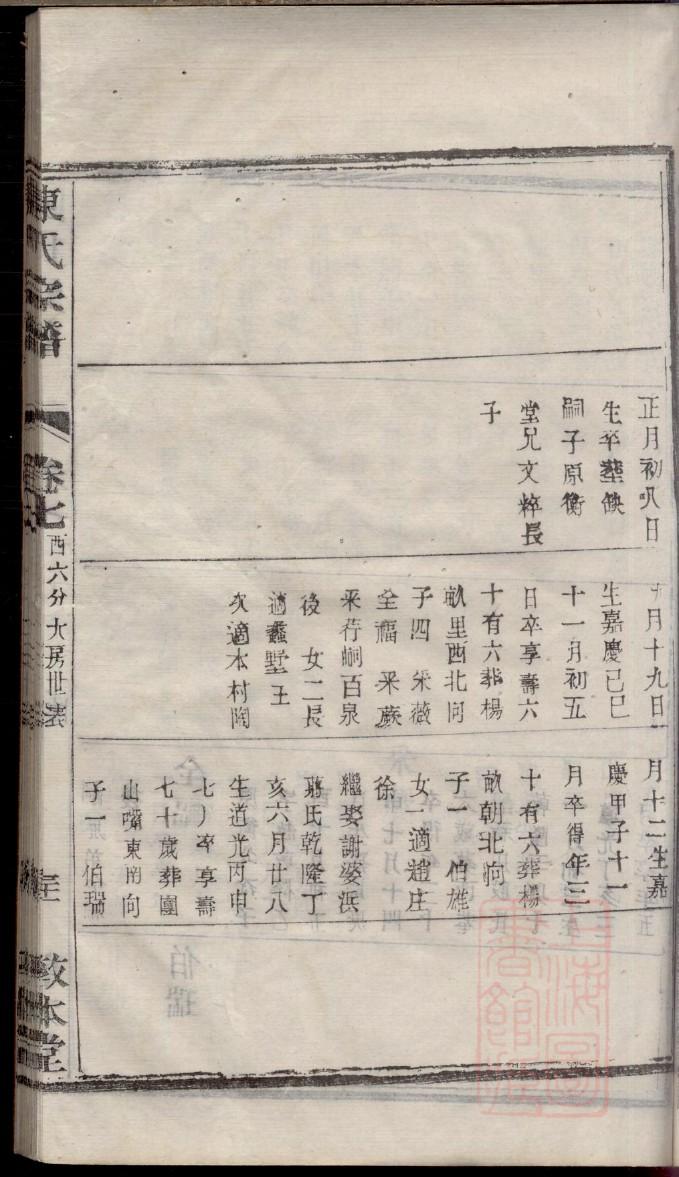 正月初八日
生卒塟缺
嗣子原衡
堂兄文粹長
子
月十九日
生嘉慶己巳
十一月初五
日卒享壽六
十有六葬楊
畝里西北向
子四 采薇
全福 采蕨
采荇嗣百泉
後 女二長
適蠡墅王
次適本村陶
月十二生嘉
慶甲子十一
月卒得年三
十有六葬楊
畝朝北向
子一 伯雄
女一適趙庄
徐
繼娶謝婆浜
蔣氏乾隆丁
亥六月廿八
生道光丙申
七月卒享壽
七十歲葬團
山嘴東南向
子一伯瑞
陳氏宗譜
卷七
西六分大房世表
敦本堂